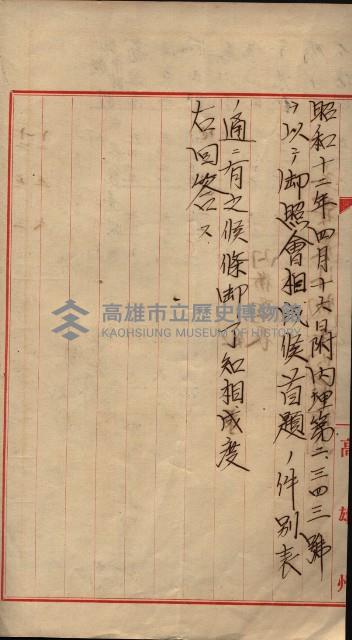 昭和十二年四月十六日附内理第二三四三號
ヲ以テ御照會相成候首題ノ件別表
ノ通ニ有之候條御了知相成度
右回答ス
高雄州
高雄市立歷史博物館
KAOHSIUNG MUSEUM OF HISTORY